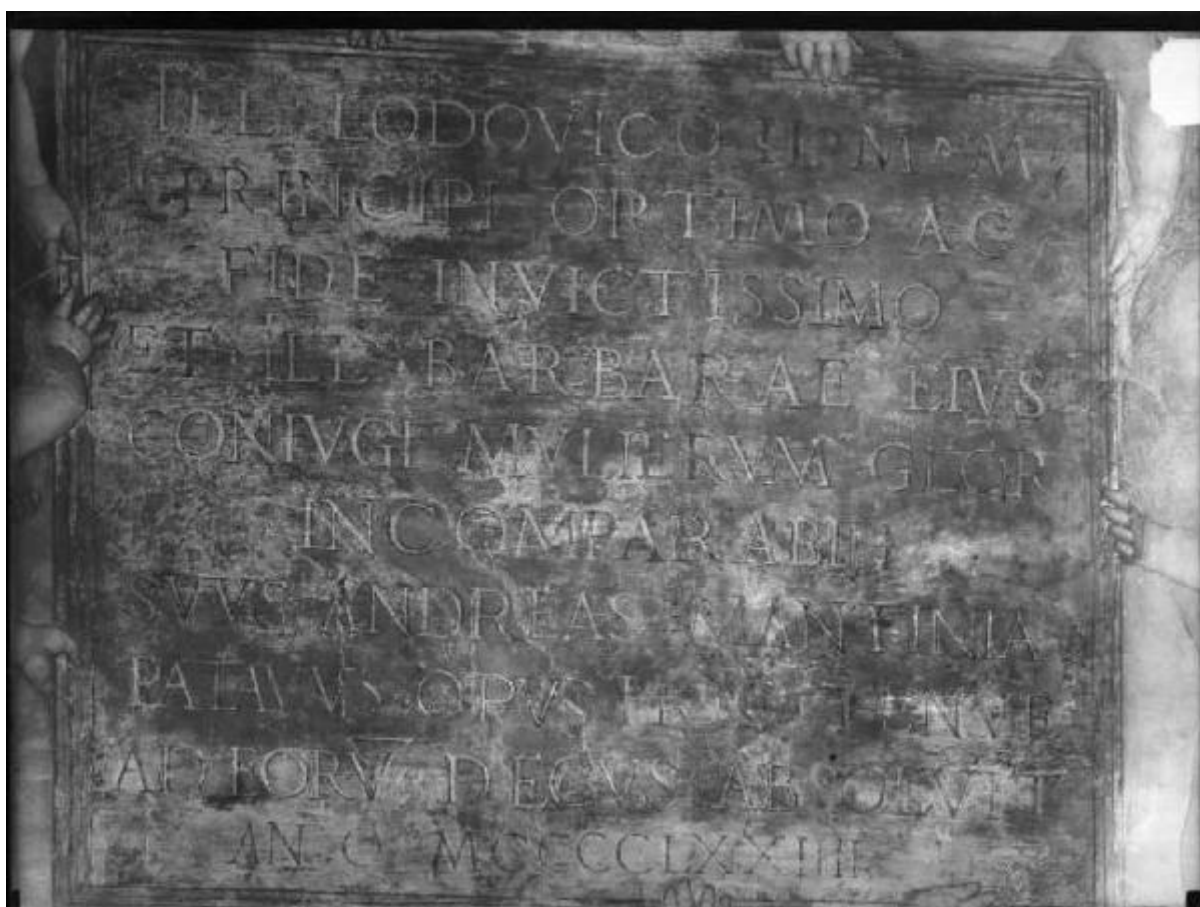 ILL LODOVICO II M M
PRINCIPI OPTIMO AC
FIDE INVICTISSIMO
ET ILL BARBARAE EIVS
CONIVGI MVLIERVM GLOR
INCOMPARABILI
SVVS ANDREAS MANTINIA
PATAVVS OPVS HOC TENVE
AD EORV DECVS ABSOLVIT
AN MCCCCLXXIIII